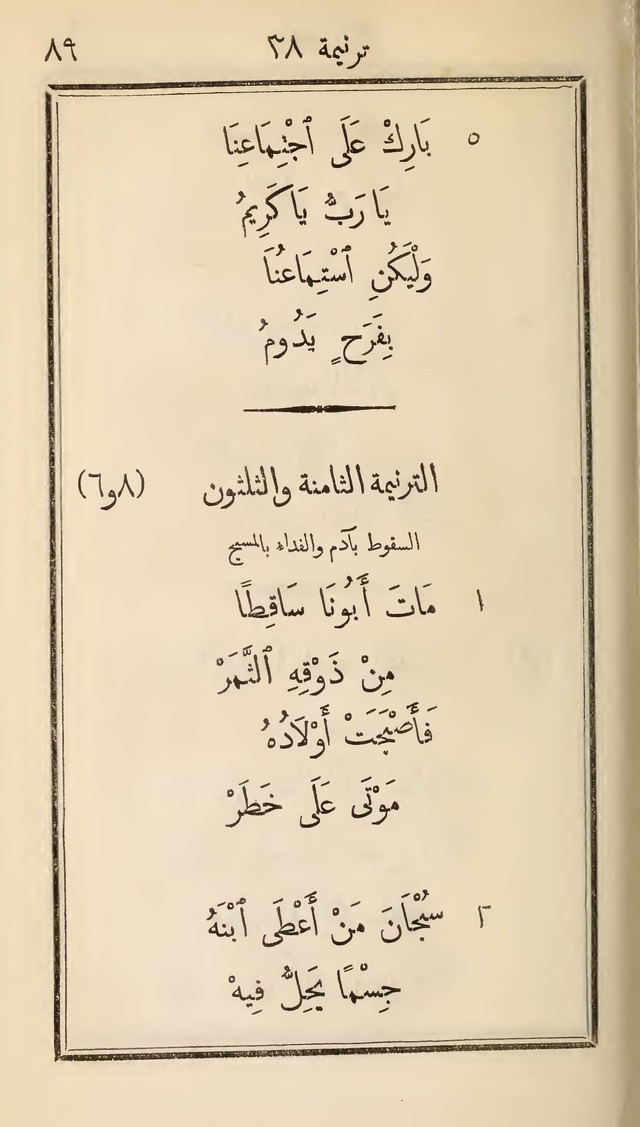 ترنيمة ٣٨ ٨٩
٥ بَارِكْ عَلَى ٱجْتِمَاعِنَا
يَا رَبُّ يَا كَرِيمُ
وَلْيَكُنِ ٱسْتِمَاعُنَا
بِفَرَحٍ يَدُومُ
الترنيمة الثامنة والثلثون (٨و٦)
السقوط بآدم والفداء بالمسيح
١ مَاتَ أَبُونَا سَاقِطًا
مِنْ ذَوْقِهِ ٱلثَّمَرْ
فَأَصْبَحَتْ أَوْلَادُهُ
مَوْتَى عَلَى خَطَرْ
٢ سُبْحَانَ مَنْ أَعْطَى ٱبْنَهُ
جِسْمًا يَحِلُّ فِيهْ